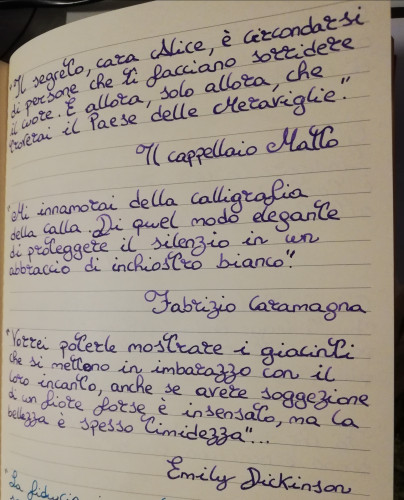 "Il segreto, cara Alice, è circondarsi
di persone che ti facciano sorridere
il cuore. È allora, solo allora, che
troverai il Paese delle Meraviglie."
Il cappellaio Matto
"Mi innamorai della calligrafia
della calla. Di quel modo elegante
di proteggere il silenzio in un
abbraccio di inchiostro bianco."
Fabrizio Caramagna
"Vorrei poterle mostrare i giacinti
che si mettono in imbarazzo con il
loro incanto, anche se avere soggezione
di un fiore forse è insensato, ma la
bellezza è spesso timidezza"...
Emily Dickinson
"La fiducia